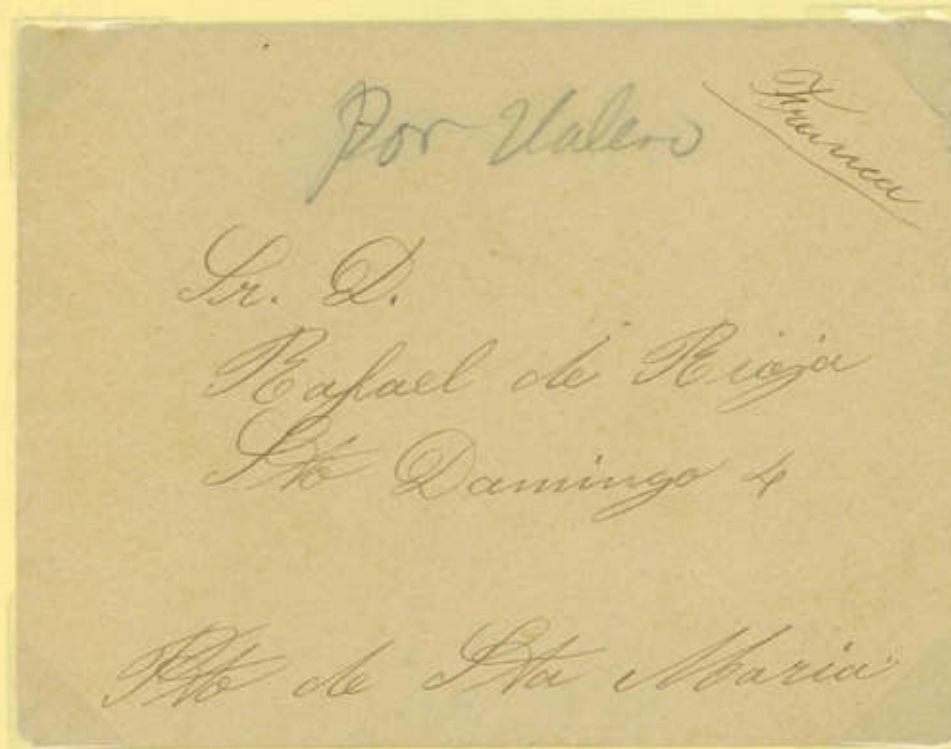 Por Valero
Franca
Sr. D.
Rafael de Rioja
Sto Domingo 4
Pto de Sta Maria